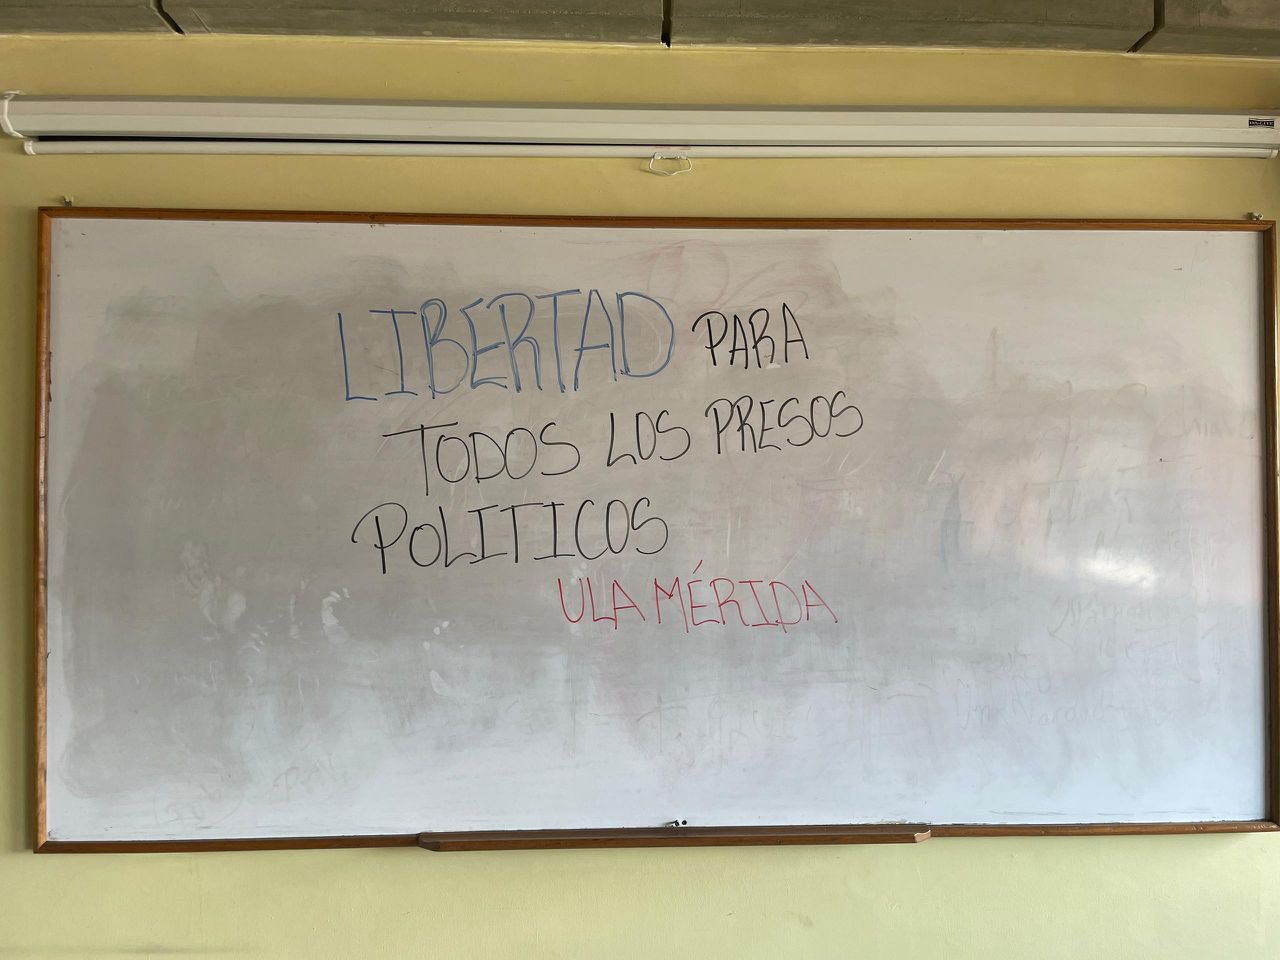 LIBERTAD PARA
TODOS LOS PRESOS
POLITICOS
ULA MÉRIDA